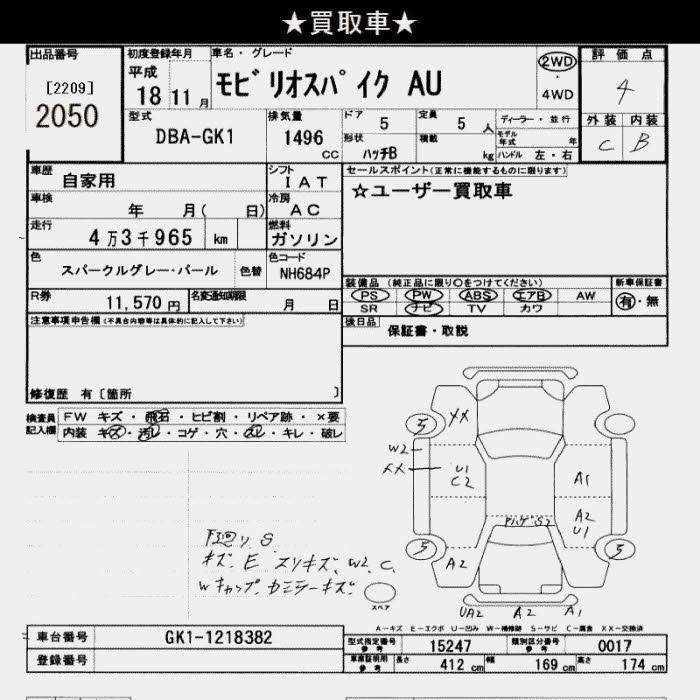 ★買取車★
出品番号
[2209]
2050
初度登録年月
平成
18 11 月
車名・グレード
モビリオスパイク AU
2WD
4WD
評価点
4
外装 内装
C B
型式
DBA-GK1
排気量
1496
CC
ドア
5
定員
5 人
形状
ハッチB
積載
kg
ディーラー・並行
モデル年式 年
ハンドル 左・右
車歴
自家用
シフト
IAT
車検
年 月( 日)
冷房
AC
走行
4万3千965 km
燃料
ガソリン
色
スパークルグレー・パール
色替
色コード
NH684P
R券
11,570 円
名変通知期限
月 日
セールスポイント(正常に機能するものに限ります)
☆ユーザー買取車
装備品(純正品に限り○をつけてください)
PS PW ABS エアB AW
SR ナビ TV カワ
新車保証書
有・無
後日品
保証書・取説
注意事項申告欄(不具合内容等は具体的に記入して下さい)
修復歴 有[箇所 ]
検査員記入欄
FW キズ・飛石・ヒビ割・リペア跡・×要
内装 キズ・汚レ・コゲ・穴・ヌレ・キレ・破レ
5
XX
W2
XX
U1
C2
A1
A2
U1
5
5
A2
UA2
A2
A1
下廻り S
キズ、E スリキズ、W2、C、
Wキャップ、カミラーキズ
スペア
A−キズ E−エクボ U−凹み W−補修跡 S−サビ C−腐食 XX−交換済
車台番号
GK1-1218382
登録番号
型式指定番号
参考
15247
類別区分番号
参考
0017
車庫証明用
参考
長さ
412 cm
幅
169 cm
高さ
174 cm